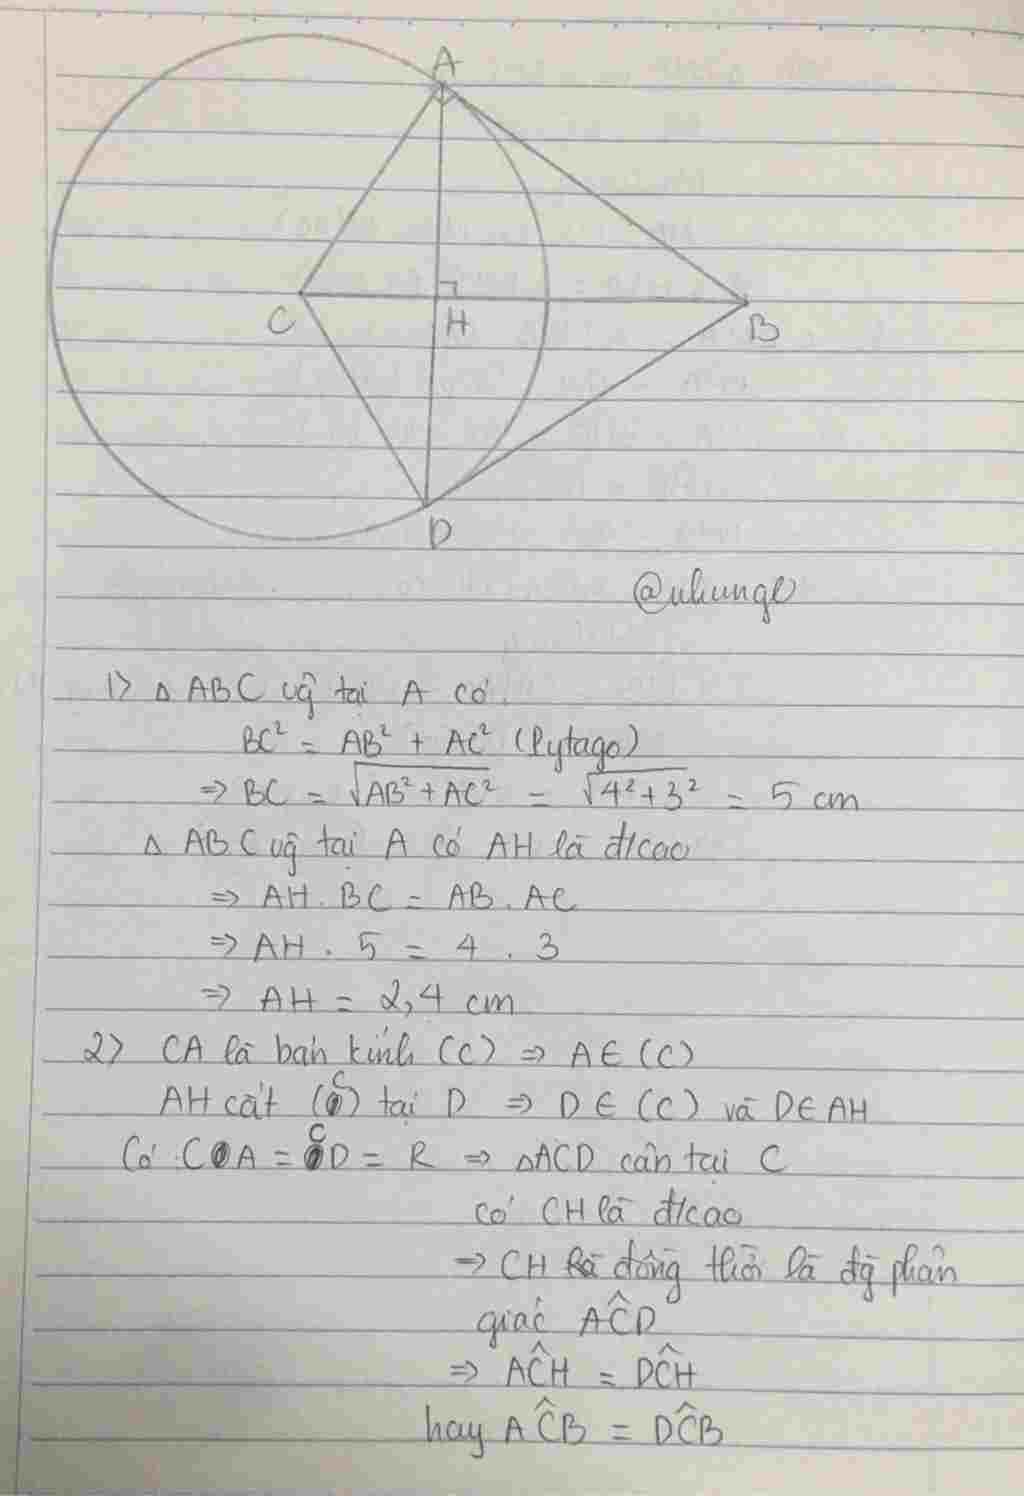 A
C
H
B
D
@nhungl
1> △ ABC vg̃ tại A có
BC² = AB² + AC² (Pytago)
=> BC = √AB² + AC² = √4² + 3² = 5 cm
△ ABC vg̃ tại A có AH là đ/cao
=> AH . BC = AB . AC
=> AH . 5 = 4 . 3
=> AH = 2,4 cm
2> CA là bán kính (C) => A ∈ (C)
AH cắt (C) tại D => D ∈ (C) và D ∈ AH
Có CA = CD = R => △ACD cân tại C
có CH là đ/cao
=> CH là đồng thời là đg̃ phân
giác AĈD
=> AĈH = DĈH
hay AĈB = DĈB